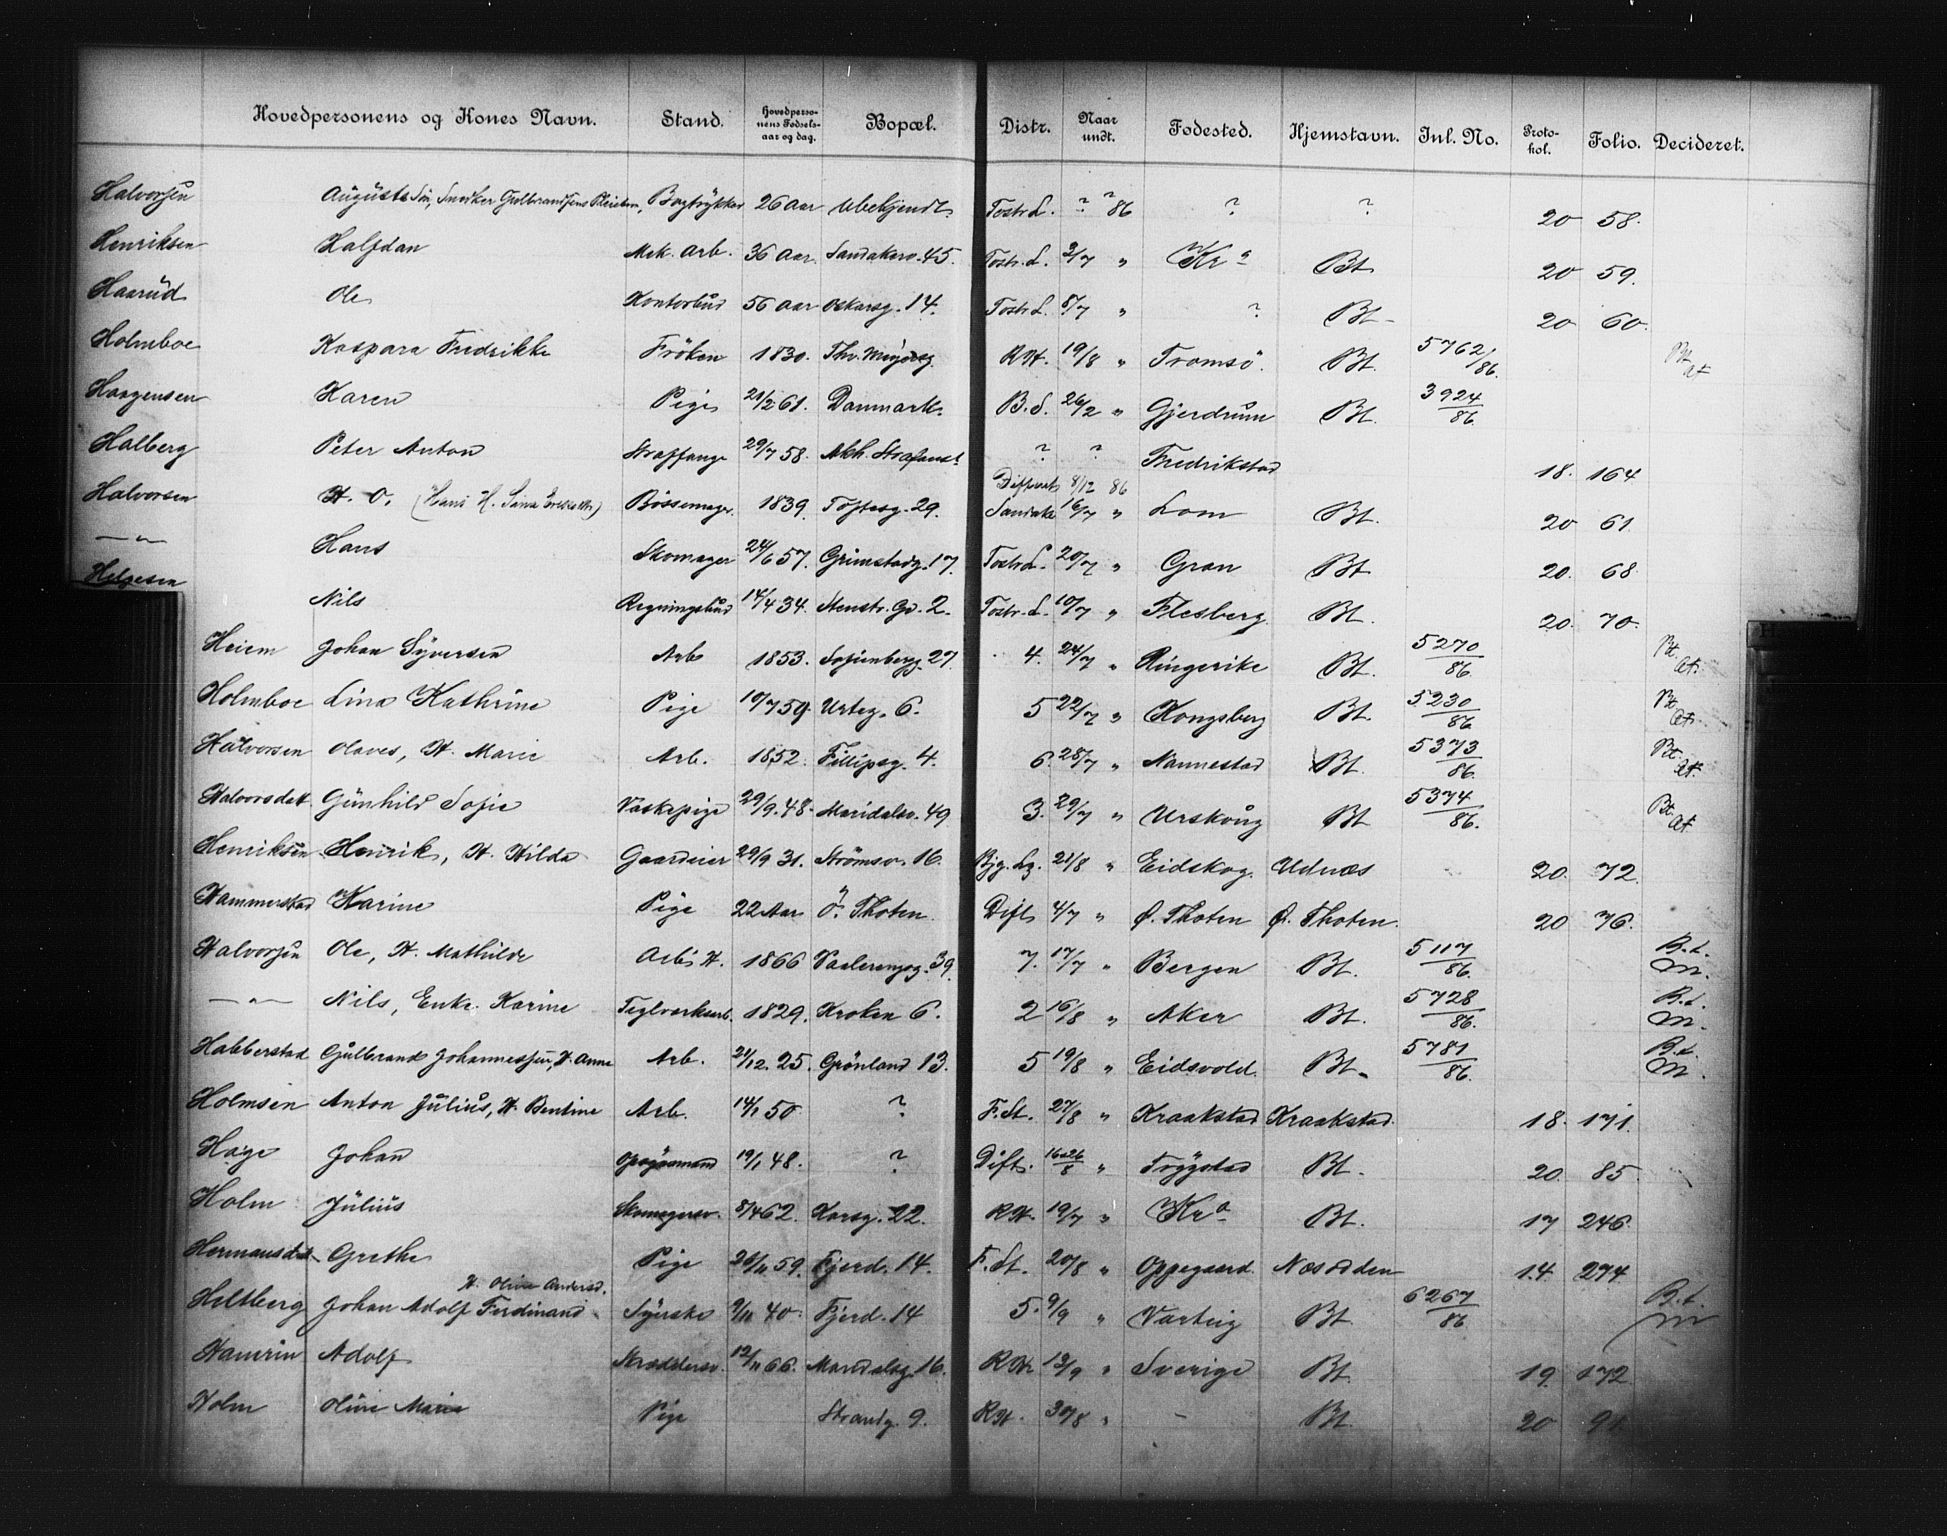 Hovedpersonens og Kones Navn. Stand. Hovedpersonens Fødsels-aar og dag. Bopæl. Distr. Naar undt. Fødested. Hjemstavn. Inl. No. Protokol. Folio. Decideret.
Halvorsen Auguste Bogtrykker 26 Aar Ubekjendt Tostr. L. ? ? 86 ? ? 20 58.
Henriksen Halfdan Mek. Arb. 36 Aar Sandakerv. 45. Tostr. L. 3/7 " Kra Bt. 20 59.
Haarud Ole Kontorbud 56 Aar Oskarsg. 14. Tostr. L. 8/7 " ? Bt. 20 60.
Holmboe Kaspara Fredrikke Frøken 1830. Thv. Meyersg. R.H. 19/8 " Tromsø Bt. 5762/86. Bt. at
Haagensen Karen Pige 21/2 61. Danmark. B.S. 26/2 " Gjerdrum Bt. 3924/86.
Halberg Peter Anton Straffange 29/7 58. Akh. Strafanst. ? ? Fredrikstad 18. 164
Halvorsen H. O. Bøssemager. 1839. Toftesg. 29. 8/12 86 Sandaker 16/7 " Lom Bt. 20 61
—"— Hans Skomager 24/6 57. Grimstadg. 17. Tostr. L. 20/7 " Gran Bt. 20. 68.
Helgesen Nils Regningsbud 14/4 34. Stenstr. Gd. 2. Tostr. L. 10/7 " Flesberg. Bt. 20. 70.
Heiem Johan Syversen Arb 1853. Sofienbergg. 27. 4. 24/7 " Ringerike Bt. 5270/86. Bt. at.
Holmboe Lina Kathrine Pige 10/7 59. Urteg. 6. 5 22/7 " Kongsberg Bt. 5230/86 Bt. at.
Halvorsen Olaves, H. Marie Arb. 1852. Fillipsg. 4. 6. 28/7 " Nannestad Bt. 5373/86. Bt. at.
Halvorsdatt. Gunhild Sofie Vaskepige 29/9. 48. Maridalsv. 49 3. 29/7 " Urskoug Bt 5374/86. Bt. at
Henriksen Henrik, H. Hilda Gaardeier 29/9 31. Strømsv. 16. Bjg. Lg. 21/8 " Eidskog. Udnæs 20. 72.
Hammerstad Karine Pige 22 Aar Ö. Thoten. Dift. 4/7 " Ø. Thoten Ø. Thoten. 20 76.
Halvorsen Ole, H. Mathilde Arb. H. 1866 Vaalerengg. 39. 7. 17/7 " Bergen Bt. 5117/86. B.t. M.
—"— Nils, Enke. Karine Teglverksarb. 1829. Kroken 6. 2 16/8 " Aker Bt. 5728/86. B.t. M.
Habberstad Gulbrand Johannessen, H. Anne Arb. 21/12. 25. Grønland 13. 5 19/8 " Eidsvold. Bt. 5781/86. B.t. M.
Holmsen Anton Julius, H. Bentine Arb. 14/1 50 ? F. St. 27/8 " Kraakstad Kraakstad. 18. 171.
Hage Johan Opsynsmand 19/1 48. ? Dift. 16 26/8 " Trygstad Bt. 20. 85
Holm Julius Skomagersv. 8/4 62. Korsg. 22. R.H. 19/7 " Kra Bt. 17 246.
Hermansdat. Grethe Pige 26/11 59. Fjerd. 14. F. St. 20/8 " Oppegaard. Næsodden 14. 274
H. Oline Andersd.
Heltberg Johan Adolf Ferdinand Syerske 9/11 40. Fjerd. 14 5. 9/9 " Varteig Bt. 6267/86 B.t. M
Hamrin Adolf Skræddersv. 12/11 66. Maridalsg. 16. R.H. 13/9 " Sverige Bt. 19. 172.
Holm Oline Marie Pige Strandg. 9. R.H. 30/8 " - Bt. 20 91.